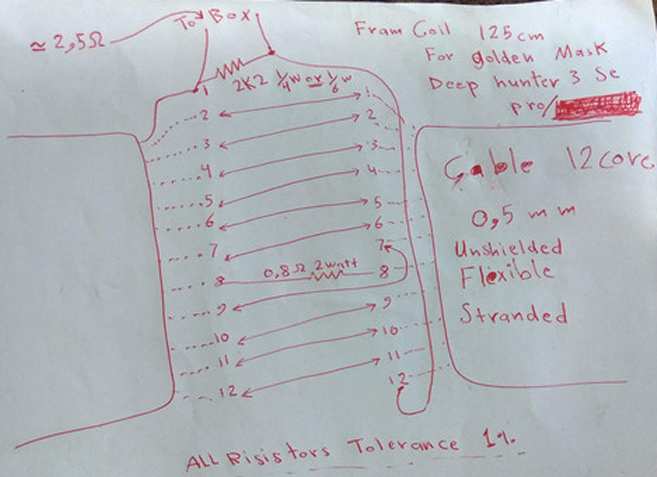 To Box
≈ 2,5Ω
Fram Coil 125cm
For golden Mask
Deep hunter 3 Se
pro/
2K2 1/4w or 1/6w
1 1
2 2
3 3
4 4
5 5
6 6
7 7
8 0,8Ω 2watt 8
9 9
10 10
11 11
12 12
Cable 12core
0,5 mm
Unshielded
Flexible
Stranded
ALL Risistors Tolerance 1%